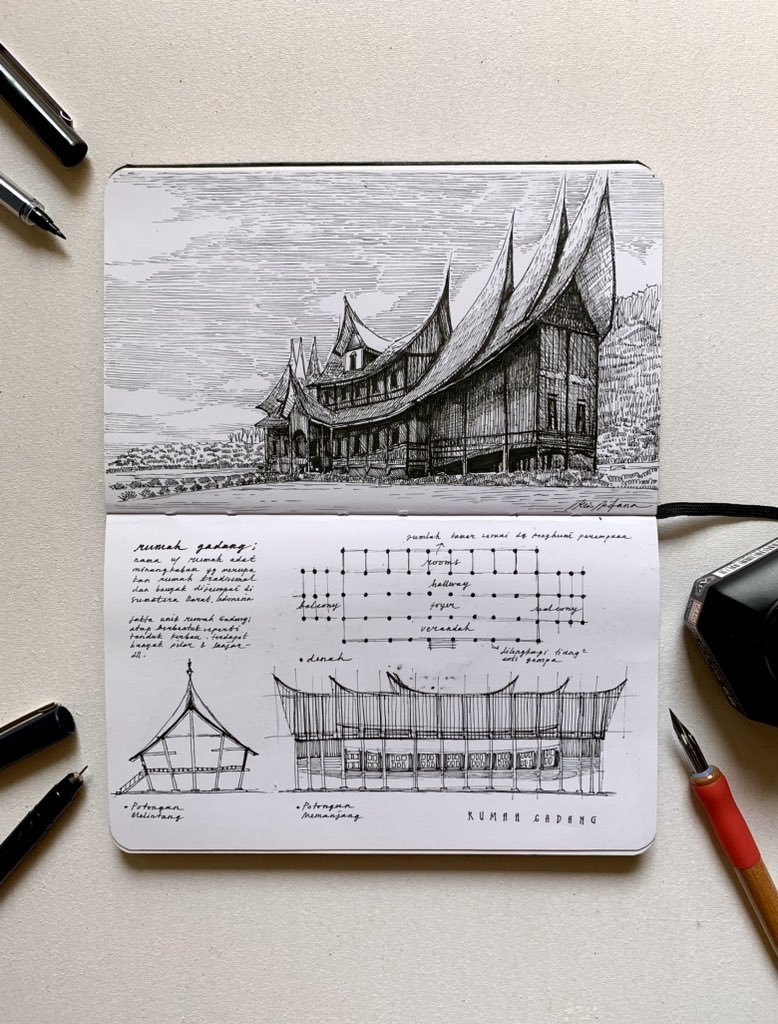 rumah gadang;
nama u/ rumah adat
minangkabau yg merupa
kan rumah tradisional
dan banyak dijumpai di
Sumatera Barat, Indonesia
fakta unik rumah Gadang;
atap berbentuk seperti
tanduk kerbau, terdapat
banyak pilar & lanjar
dll.
jumlah kamar sesuai dg penghuni perempuan
rooms
hallway
balcony
foyer
balcony
verandah
• denah
dilengkapi tiang²
anti gempa
• Potongan
Melintang
• Potongan
Memanjang
RUMAH GADANG